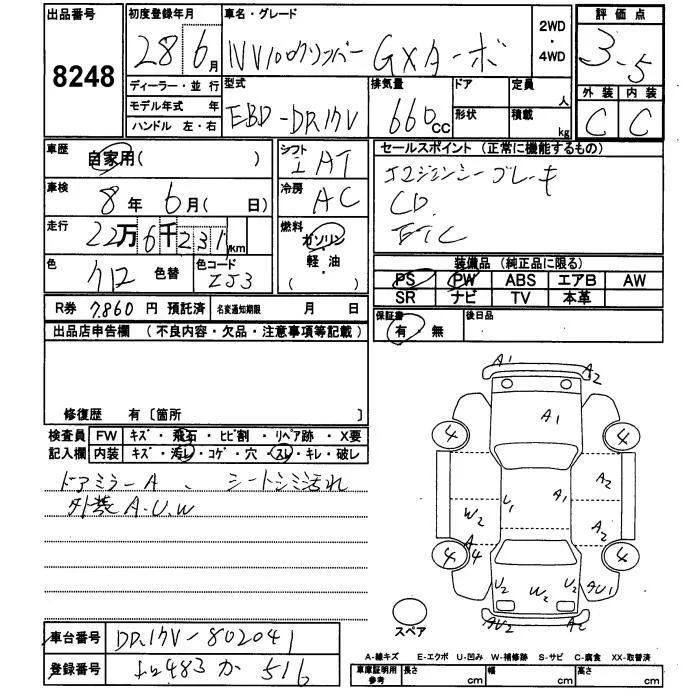 出品番号 8248
初度登録年月 28 6月
車名・グレード NV100クリッパー GXターボ
2WD・4WD
評価点 3.5
外装 内装
C C
ディーラー・並行
モデル年式 年
ハンドル 左・右
型式 EBD-DR17V
排気量 660cc
ドア
形状
定員 人
積載 kg
車歴 自家用( )
シフト IAT
セールスポイント (正常に機能するもの)
エマージェンシーブレーキ
CD
ETC
車検 8年6月( 日)
冷房 AC
走行 22万6千231km
燃料 ガソリン・軽・油・( )
色 クロ 色替
色コード ZJ3
装備品 (純正品に限る)
PS PW ABS エアB AW
SR ナビ TV 本革
R券 7,860円 預託済
名変通知期限 月 日
保証書 有・無
後日品
出品店申告欄 (不良内容・欠品・注意事項等記載)
修復歴 有〔箇所 〕
検査員記入欄
FW キズ・飛石・ヒビ割・リペア跡・X要
内装 キズ・汚レ・コゲ・穴・スレ・キレ・破レ
ドアミラーA、シートシミ汚れ
外装A.U.W
A1 A2
A1
4 4
A2
U1 A1 A2
W2
A4
4 4
U2 W2 U2 AU1
AU2
スペア
A-線キズ E-エクボ U-凹み W-補修跡 S-サビ C-腐食 XX-取替済
車台番号 DR17V-802041
登録番号 483 か 516
車庫証明用参考
長さ cm 幅 cm 高さ cm